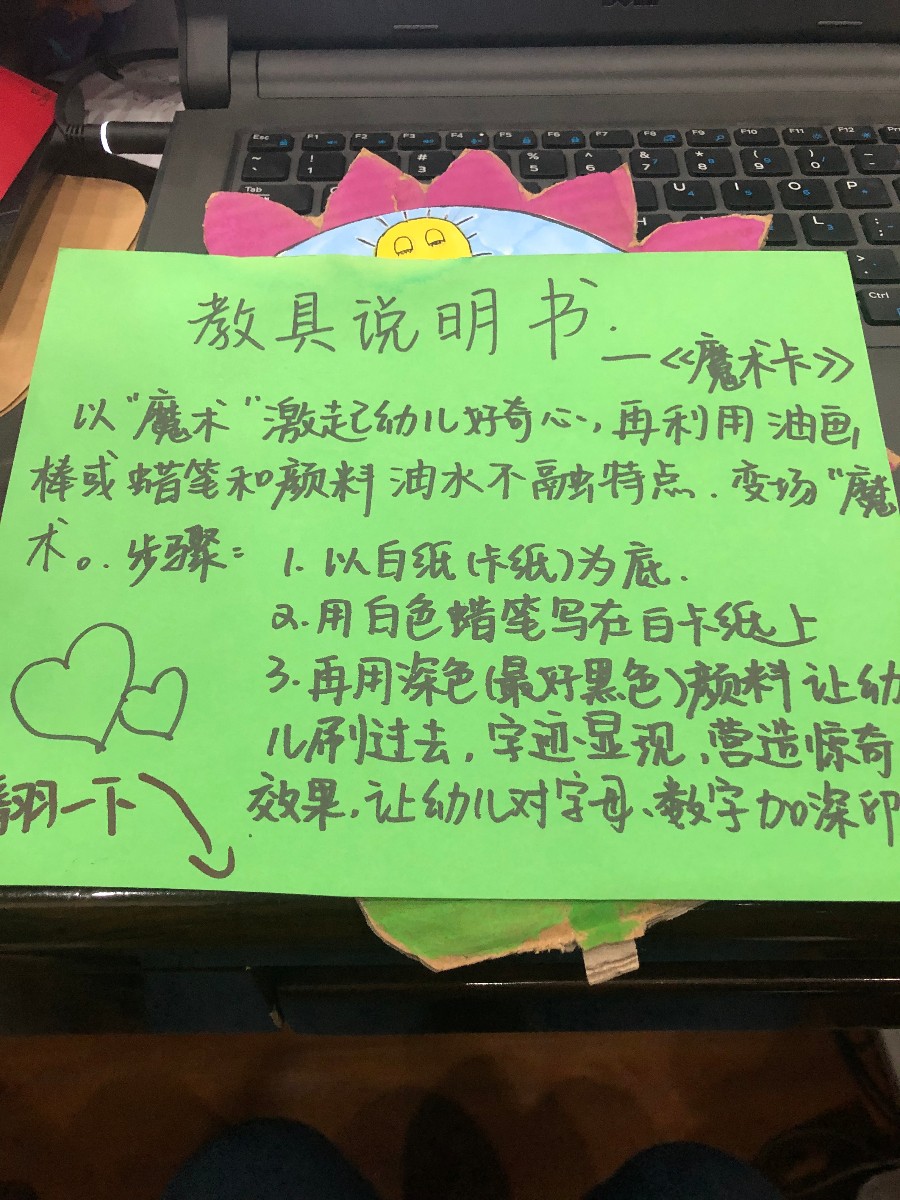 教具说明书.
—《魔术卡》
以"魔术"激起幼儿好奇心,再利用油画
棒或蜡笔和颜料油水不融特点.变场"魔
术。.步骤:
1.以白纸(卡纸)为底.
2.用白色蜡笔写在白卡纸上
3.再用深色(最好黑色)颜料让幼
儿刷过去,字迹显现,营造惊奇
效果,让幼儿对字母、数字加深印
翻一下
Esc F1 F2 F3 F4 F5 F6 F7 F8 F9 F10 F11 F12
~ ` ! 1 # 3 % 5 ^ 6 & 7 * 8 ( 9 ) 0
Tab U I O P
H L
Ctrl